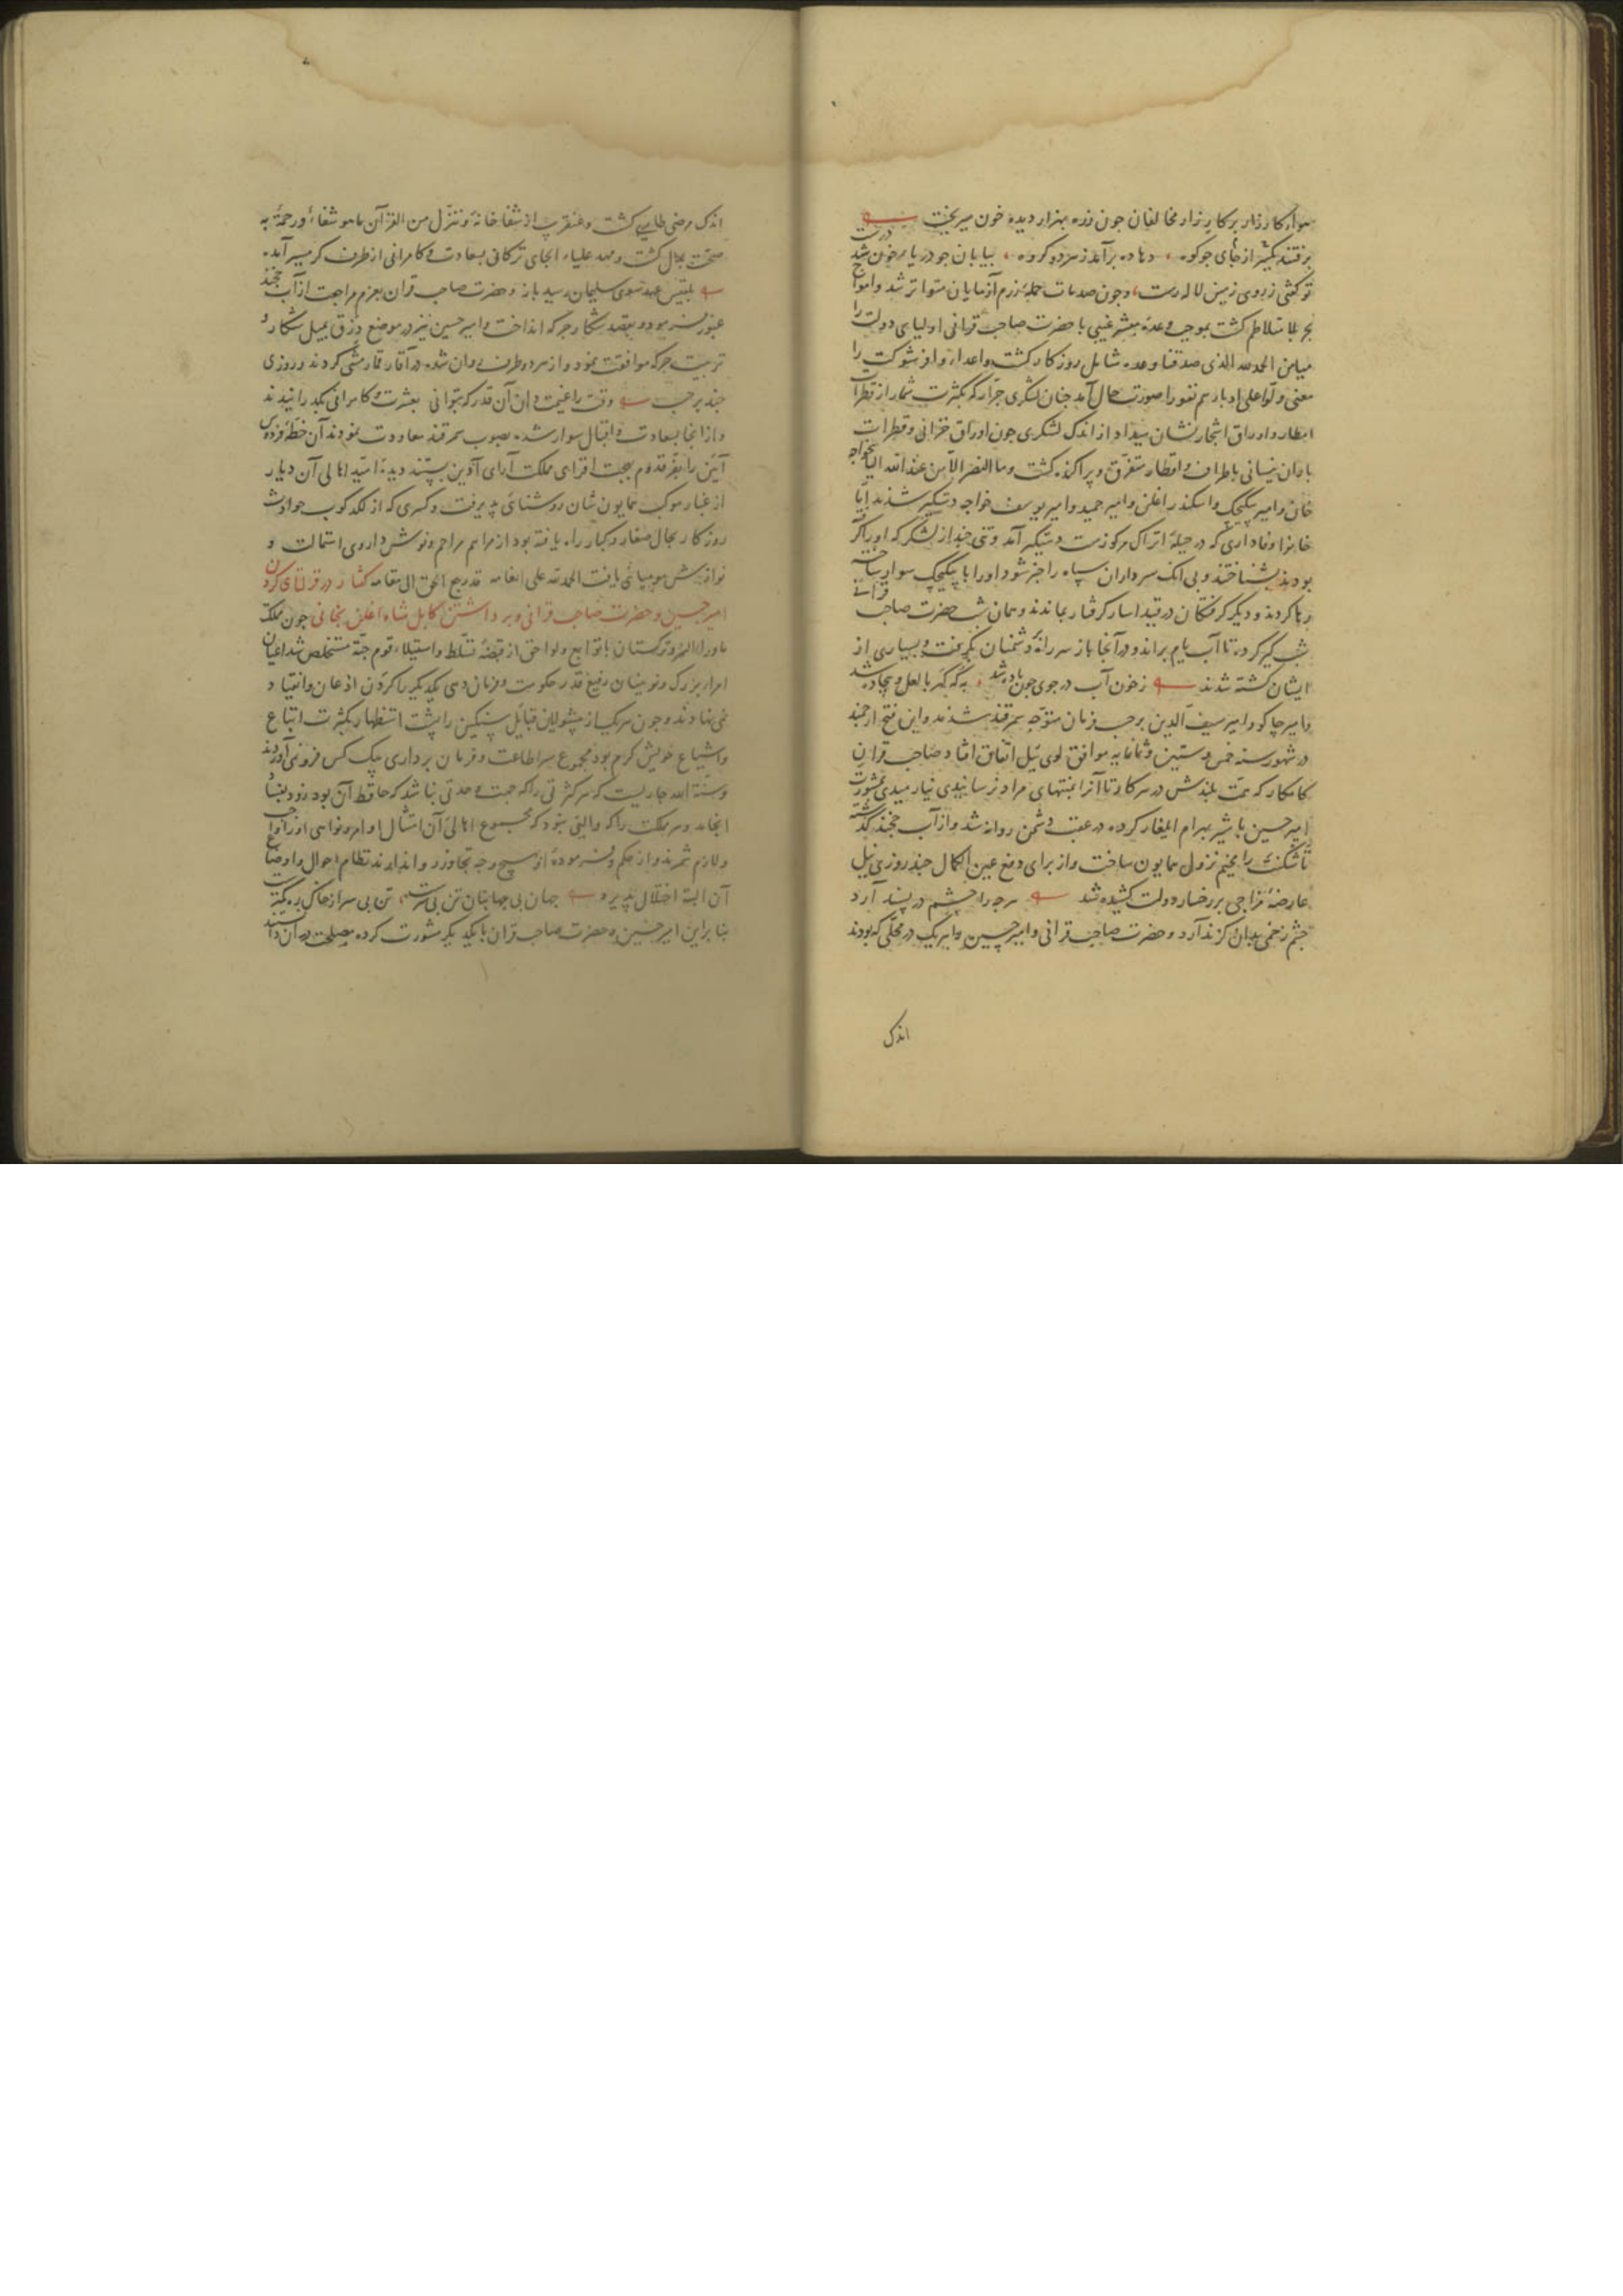 هوا کارزار بر کارزار مخالفان چون زره بهزار دیده خون میریخت
برفتند یکسر از جای جو کوه دهاده برآمد ز هر دو کروه بیابان جو دریای خون شد درست
تو کفتی ز روی زمین لاله رست و جون صدمات حملهٔ رزم آزمایان متواتر شد و امواج
بحر بلا متلاطم کشت بموجب وعده مبشر غیبی با حضرت صاحب قرانی اولیای دولت را
میامن الحمد لله الذی صدقنا وعده شامل روزکار کشت و اعداء وافر شوکت را
معنی ولوا علی ادبارهم نفورا صورت حال آمد جنان لشکری جرار که بکثرت شمار از قطرات
امطار و اوراق اشجار نشان میداد از اندک لشکری جون اوراق خزانی و قطرات
باران نیسانی باطراف و اقطار متفرق و پراکنده کشت وما النصر الا من عند الله الیاس خواجه
خان و امیر بیکیجک و اسکندر اغلن و امیر حمید و امیر یوسف خواجه دستکیر شدند اما
خانرا وفاداری که در جبلهٔ اتراک مرکوزست دستکیر آمد و تنی جند از لشکر که او را
بودند بشناختند و بی آنک سرداران سپاه را خبر شود او را با بیکیجک سوار ساخته
رها کردند و دیکر کرفتکان در قید اسار کرفتار بماندند و همان شب حضرت صاحب قرانی
شب کیر کرده تا آب یام براند و در آنجا باز سر راه دشمنان بکرفت و بسیاری از
ایشان کشته شدند ز خون آب در جوی جون باده شد که کهربا لعل و بیجاده شد
و امیر جاکو و امیر سیف الدین بر حسب فرمان متوجه سمرقند شدند و این فتح ارجمند
در شهور سنه خمس و ستین و ثمانمایه موافق لوی ئیل اتفاق افتاد صاحب قران
کامکار که همت بلندش در هر کار تا آنرا بمنتهای مراد نرسانیدی نیارمیدی بمشورت
امیر حسین با شیر بهرام ایلغار کرده در عقب دشمن روانه شد و از آب خجند کذشته
تاشکنت را مخیم نزول همایون ساخت و از برای دفع عین الکمال جند روزی نیل
عارضهٔ مزاجی بر رخسار دولت کشیده شد هرجه را جشم در پسند آرد
جشم زخمی بدان کزند آرد و حضرت صاحب قرانی و امیر حسین و امیر یک در محلی که بودند
اندک
اندک مرضی طاری کشت و عنقریب از شفاخانهٔ وننزل من القرآن ما هو شفاء ورحمة به
صحت بدل کشت و مهد علیاء الجای ترکان بسعادت و کامرانی از طرف کرمسیر آمد
بلقیس عهد سوی سلیمان رسید باز و حضرت صاحب قران بعزم مراجعت از آب خجند
عبور فرمود و بقصد شکار جرکه انداخت و امیر حسین نیز در موضع دزق بمیل شکار و
تربیت جرکه موافقت نمود و از هر دو طرف روان شده در آقار قمارمشی کردند و روزی
جند بر حسب وقت را غنیمت دان آن قدر که بتوانی بعشرت و کامرانی بکذرانیدند
و از انجا بسعادت و اقبال سوار شده بصوب سمرقند معاودت نمودند آن خطهٔ فردوس
آیین را بفر قدوم بهجت افزای مملکت آرای آذین بستند دیدهٔ امید اهالی آن دیار
از غبار موکب همایون نشان روشنائی پذیرفت و کسری که از لکدکوب حوادث
روزکار بحال صغار و کبار راه یافته بود از مراهم مراحم و نوش داروی استمالت و
نوازش مومیائی یافت الحمد لله علی انعامه قد رجع الحق الی مقامه کفتار در قرلتای کردن
امیر حسین و حضرت صاحب قرانی و برداشتن کابل شاه اغلن بخانی جون مملکت
ماوراء النهر و ترکستان با توابع و لواحق از قبضهٔ تسلط و استیلاء قوم جته مستخلص شد اعیان
امراء بزرک و نوینیان رفیع قدر حکومت و فرمان دهی یکدیکر را کردن اذعان و انقیاد
نمی نهادند و جون هریک از پیشوایان قبایل سنکین را پشت استظهار بکثرت اتباع
و اشیاع خویش کرم بود مجموع سر اطاعت و فرمان برداری یک کس فرو نمی آوردند
و سنة الله جاریست که هر کثرتی را که جهت وحدتی نباشد که حافظ آن بود زود بفساد
انجامد و هر مملکت را که والیی نبود که مجموع اهالی آن امتثال اوامر و نواهی او را واجب
و لازم شمرند و از حکم و فرموده او بهیچ وجه تجاوز روا ندارند نظام احوال و اوضاع
آن البته اختلال پذیرد جهان بی جهانبان تن بی سرست تن بی سر از خاک ره کمترست
بنابراین امیر حسین و حضرت صاحب قران با یکدیکر مشورت کرده مصلحت در آن دانستند